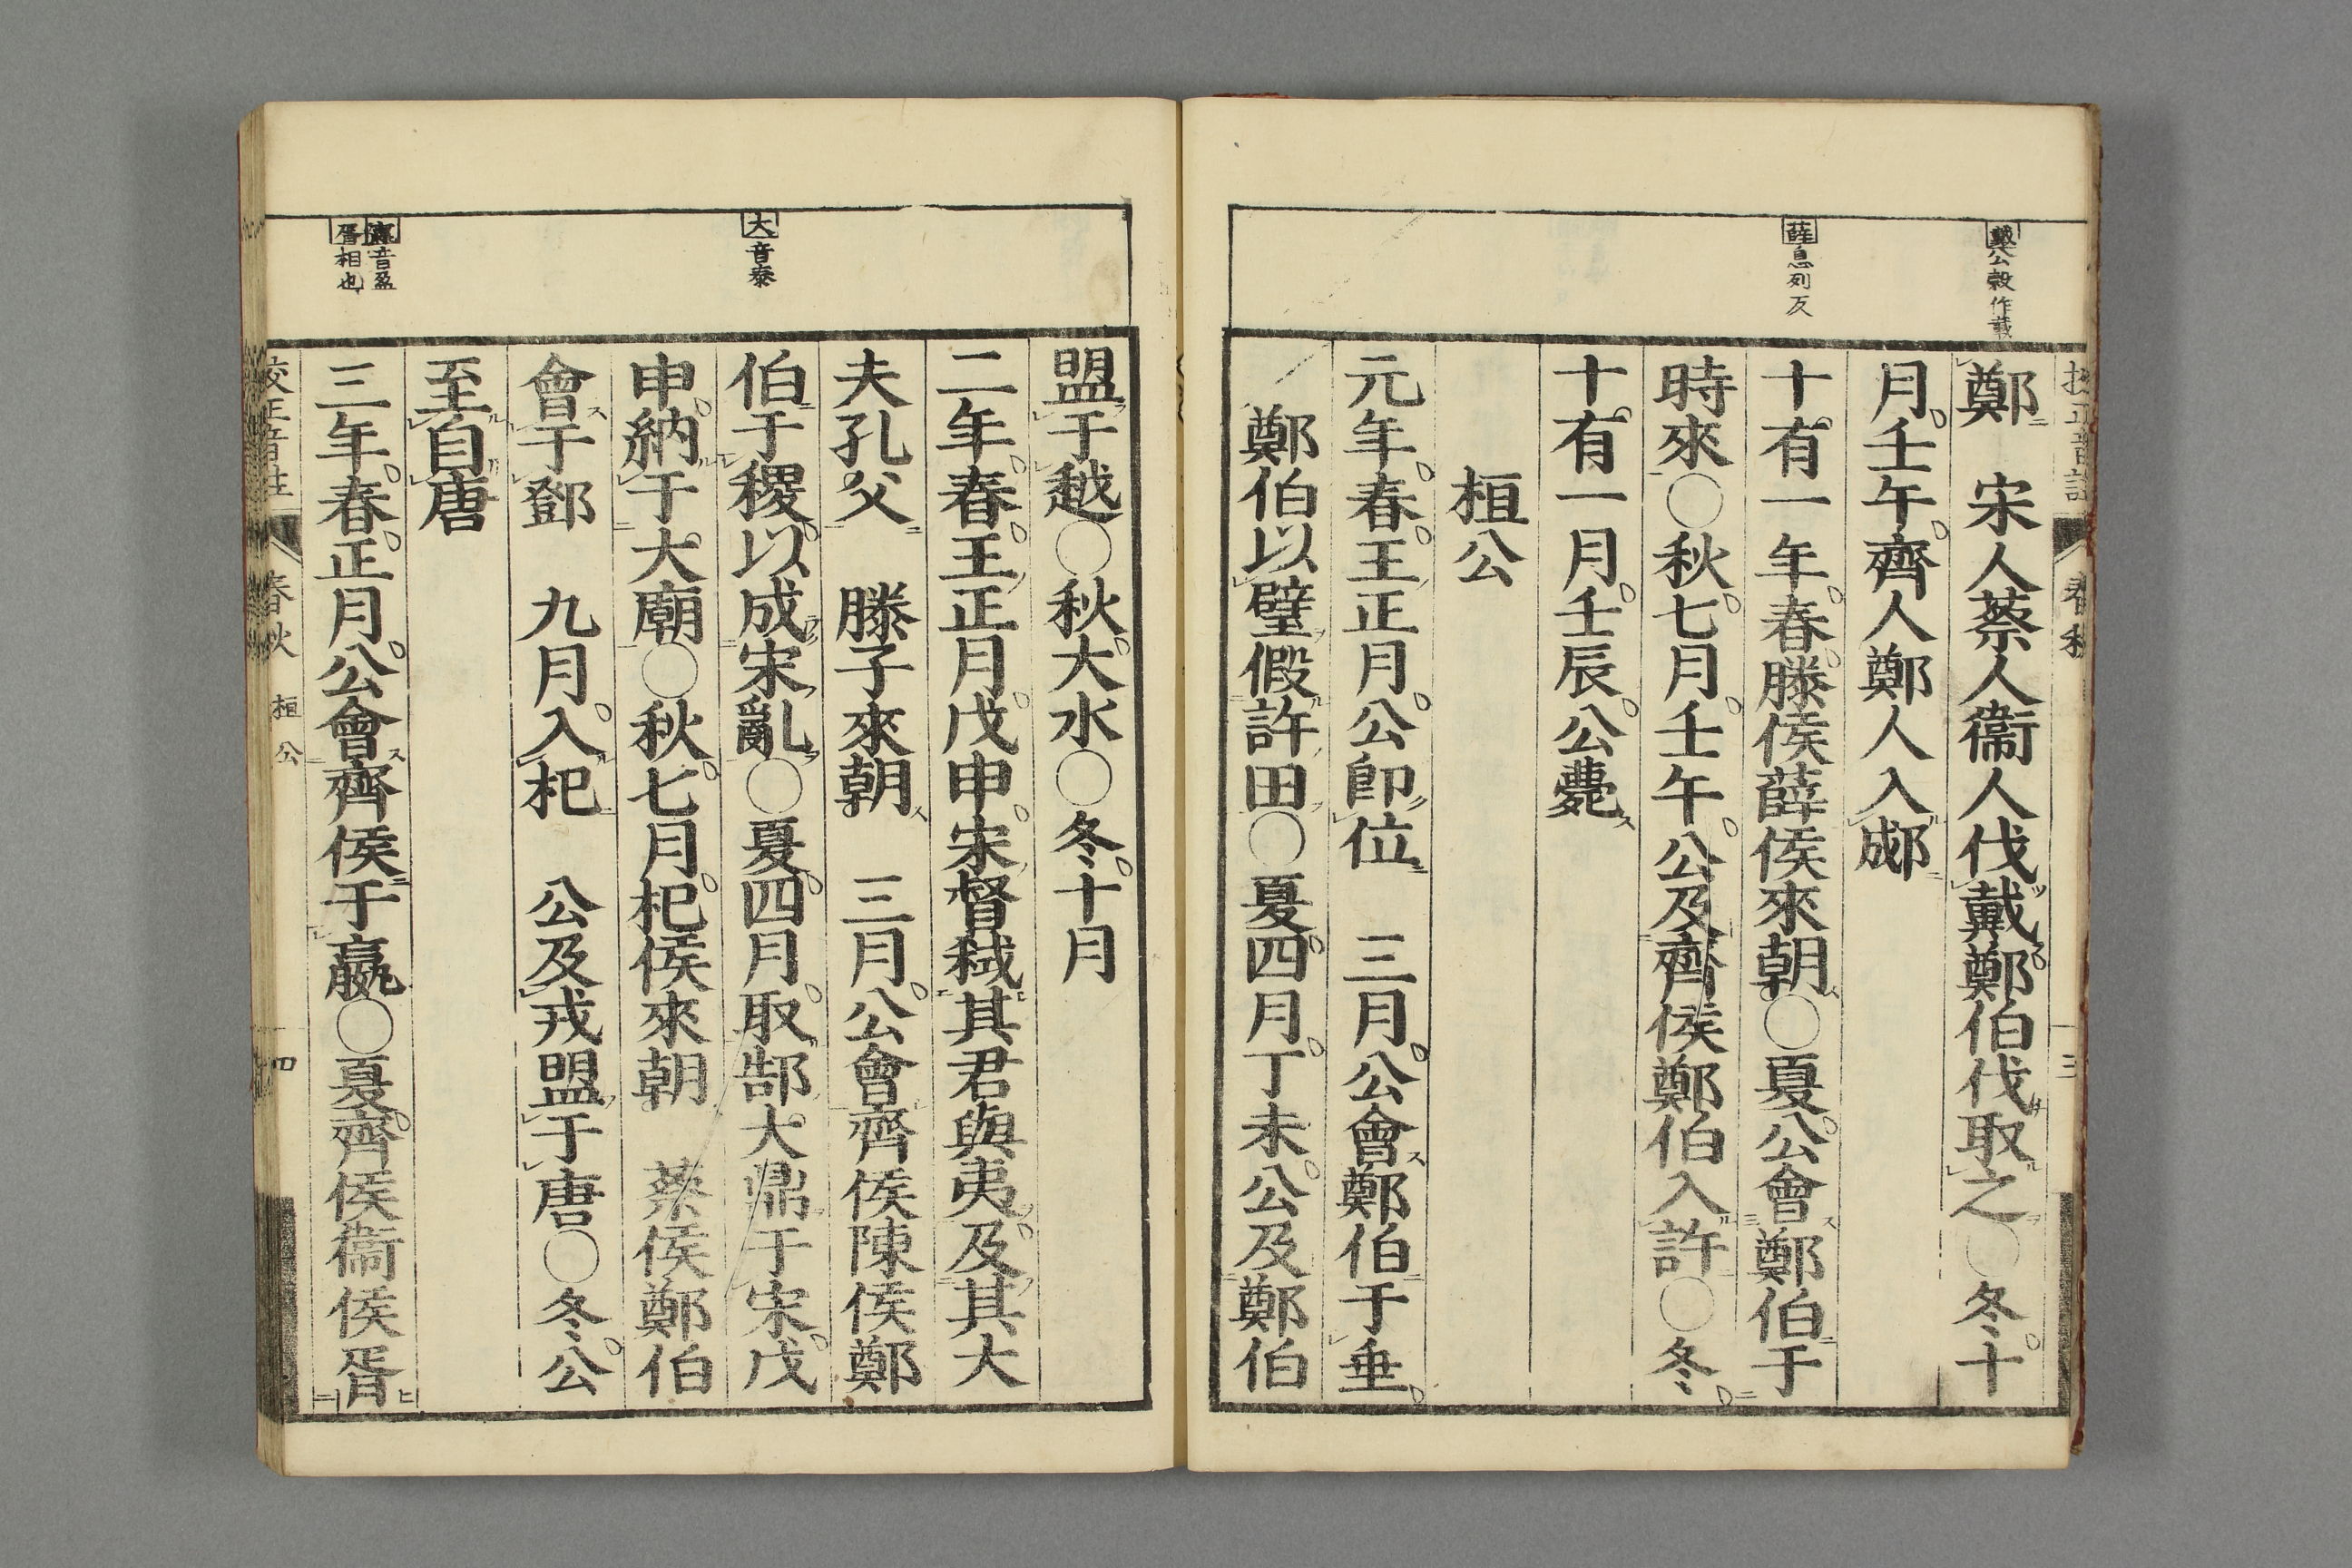 戴公穀作載
薛息列反
校正音註 春秋 三
鄭　宋人蔡人衞人伐戴鄭伯伐取之〇冬十
月壬午齊人鄭人入郕
十有一年春滕侯薛侯來朝〇夏公會鄭伯于
時來〇秋七月壬午公及齊侯鄭伯入許〇冬
十有一月壬辰公薨
桓公
元年春王正月公卽位　三月公會鄭伯于垂
鄭伯以璧假許田〇夏四月丁未公及鄭伯
大音泰
嬴音盈
胥相也
盟于越〇秋大水〇冬十月
二年春王正月戊申宋督弑其君與夷及其大
夫孔父　滕子來朝　三月公會齊侯陳侯鄭
伯于稷以成宋亂〇夏四月取郜大鼎于宋戊
申納于大廟〇秋七月杞侯來朝　蔡侯鄭伯
會于鄧　九月入杞　公及戎盟于唐〇冬公
至自唐
三年春正月公會齊侯于嬴〇夏齊侯衞侯胥
校正音註 春秋 桓公 四